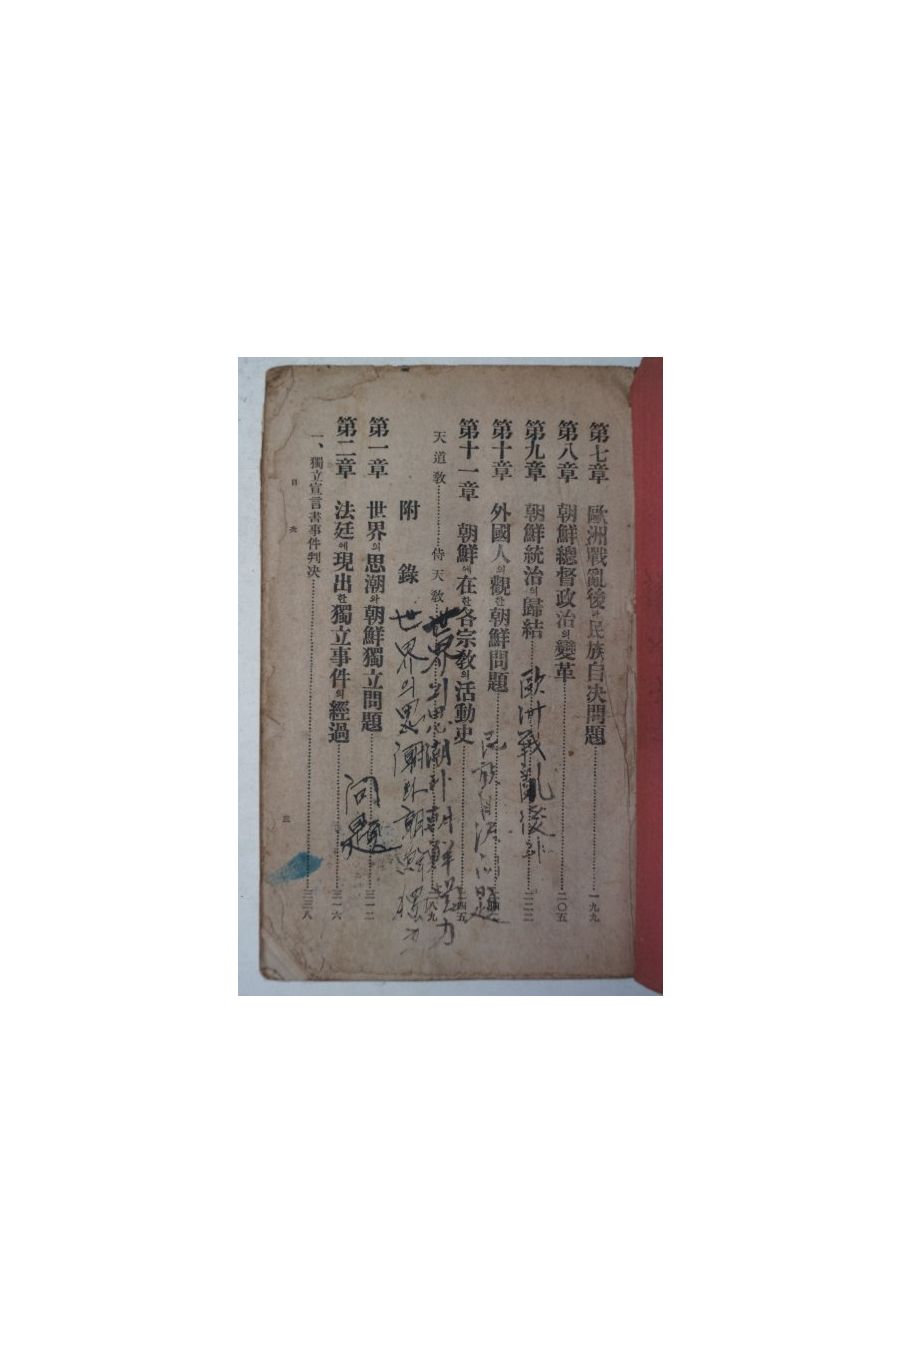 第七章 歐洲戰亂後와民族自決問題……一九九
第八章 朝鮮總督政治의變革……二〇五
第九章 朝鮮統治의歸結……二二二
第十章 外國人의觀한朝鮮問題
第十一章 朝鮮에在한各宗敎의活動史……二四五
天道敎……侍天敎……八九
附錄
第一章 世界의思潮와朝鮮獨立問題……三一二
第二章 法廷에現出한獨立事件의經過……三一六
一、獨立宣言書事件判決……三三八
目次
三
歐洲戰亂後와
民族自決問題
世界의思潮와朝鮮
世界의思潮와朝鮮獨立
問題